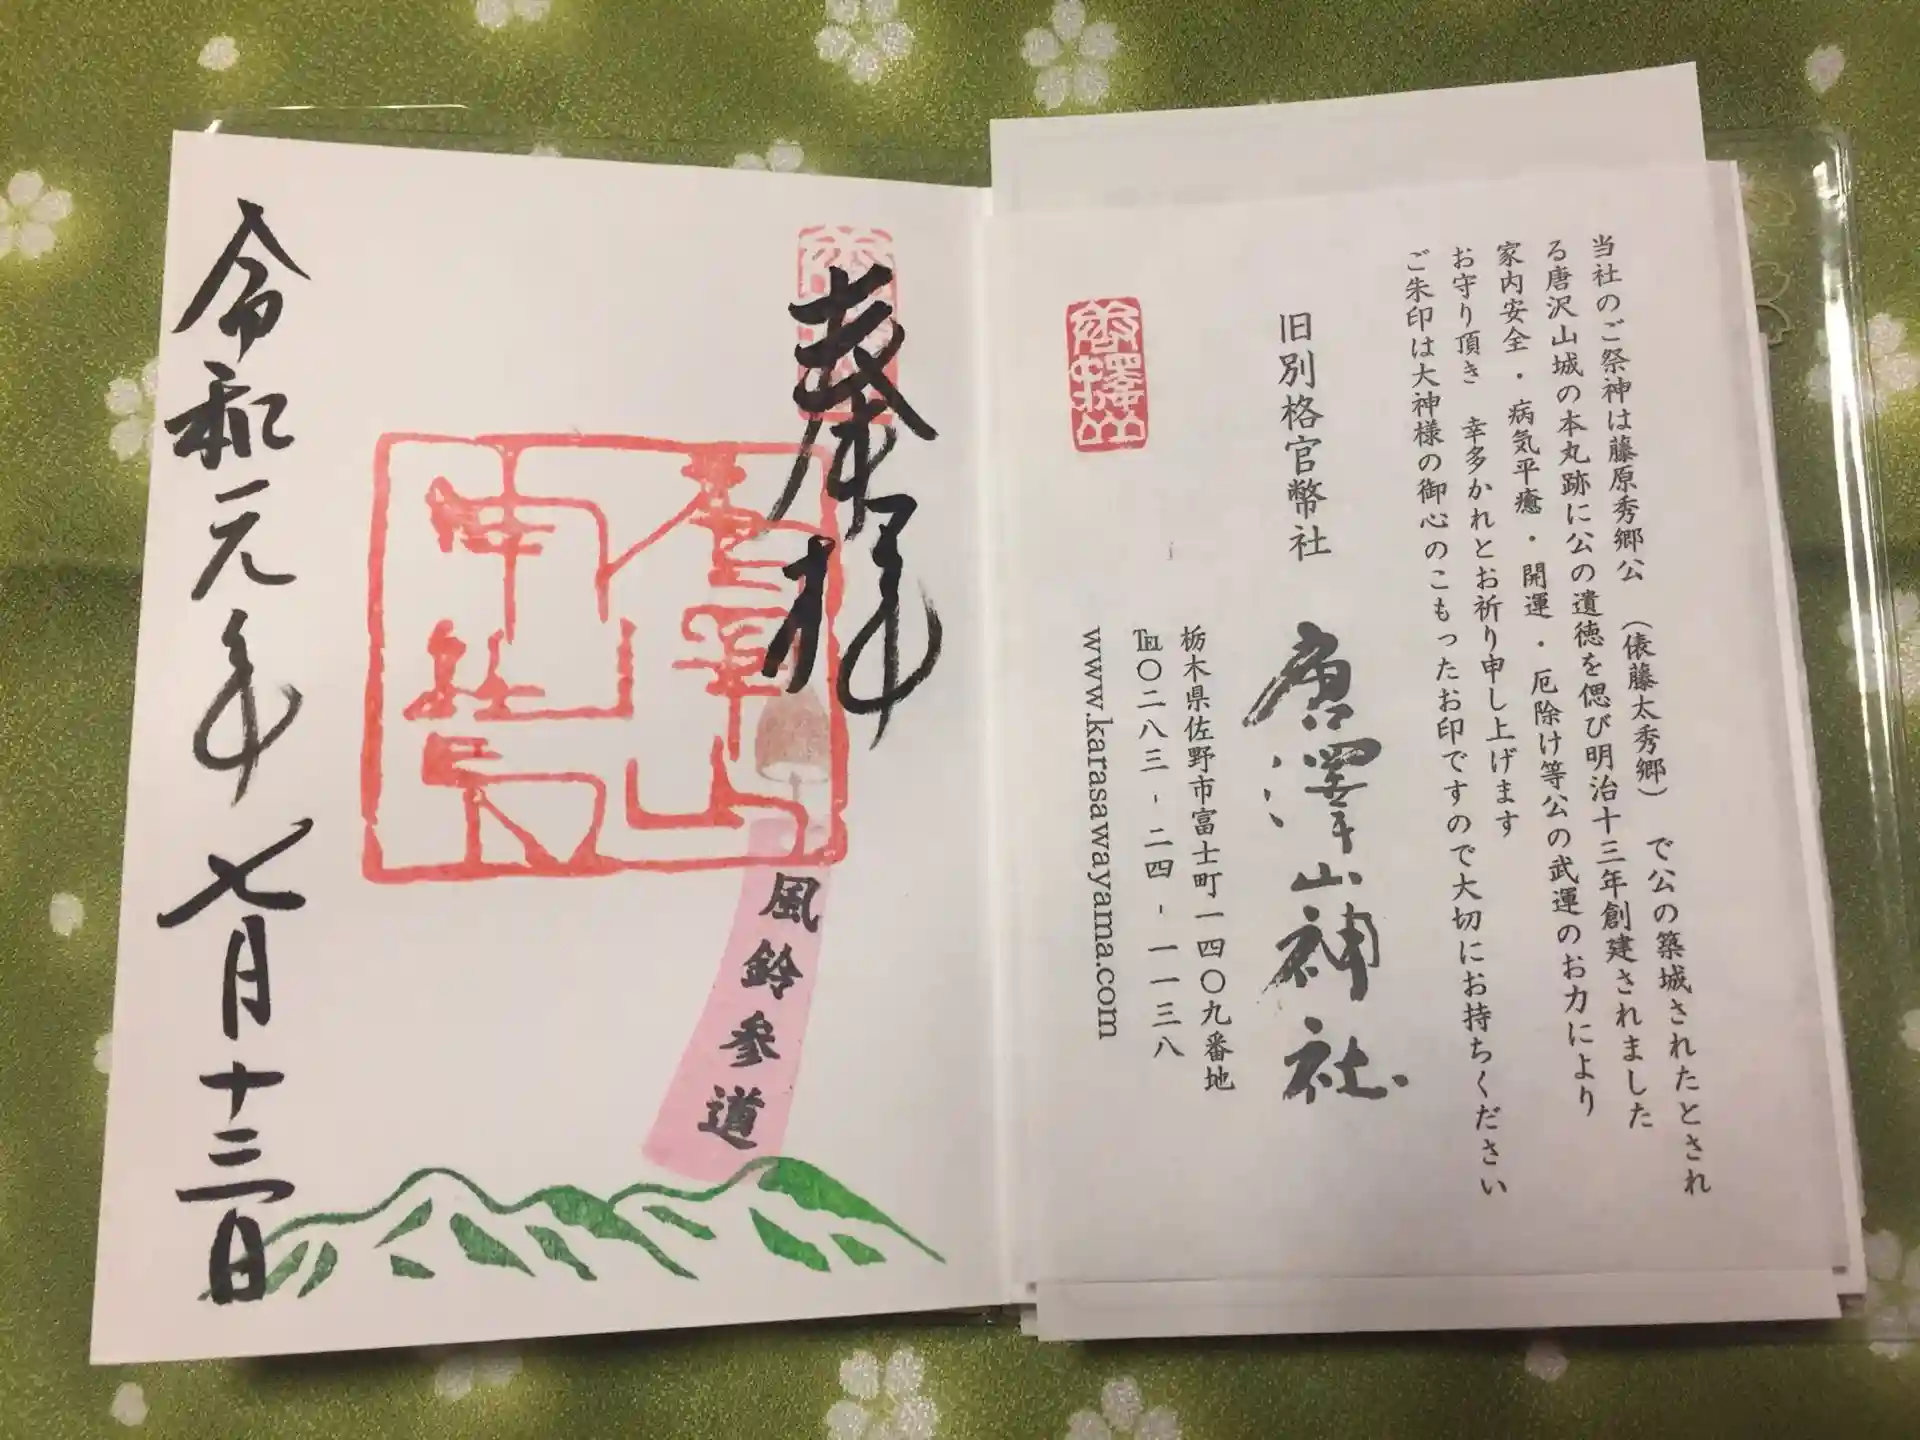 当社のご祭神は藤原秀郷公（俵藤太秀郷）で公の築城されたとされ
る唐沢山城の本丸跡に公の遺徳を偲び明治十三年創建されました
家内安全・病気平癒・開運・厄除け等公の武運のお力により
お守り頂き　幸多かれとお祈り申し上げます
ご朱印は大神様の御心のこもったお印ですので大切にお持ちください
旧別格官幣社　唐澤山神社
栃木県佐野市富士町一四〇九番地
℡〇二八三-二四-一一三八
www.karasawayama.com
唐澤山
奉拝
風鈴参道
令和元年七月十三日